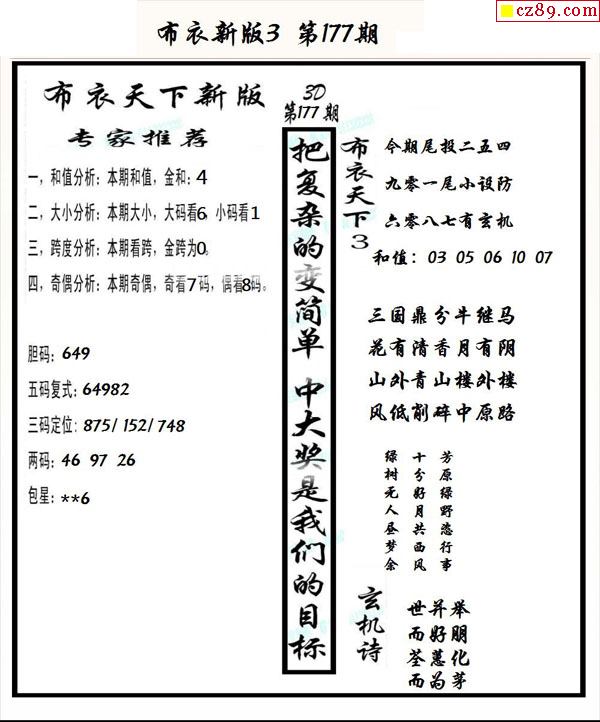 cz89.com
布衣新版3 第177期
布衣天下新版
专家推荐
一，和值分析：本期和值，金和：4
二，大小分析：本期大小，大码看6，小码看1
三，跨度分析：本期看跨，金跨为0。
四，奇偶分析：本期奇偶，奇看7码，偶看8码。
胆码：649
五码复式：64982
三码定位：875/152/748
两码：46 97 26
包星：**6
3D
第177期
把复杂的变简单 中大奖是我们的目标
布衣天下3
今期尾投二五四
九零一尾小设防
六零八七有玄机
和值：03 05 06 10 07
三国鼎分牛继马
花有清香月有阴
山外青山楼外楼
风低削碎中原路
芳原绿野恣行事
十分好月共西风
绿树无人昼梦余
玄机诗
世并举
而好朋
荃蕙化
而为茅